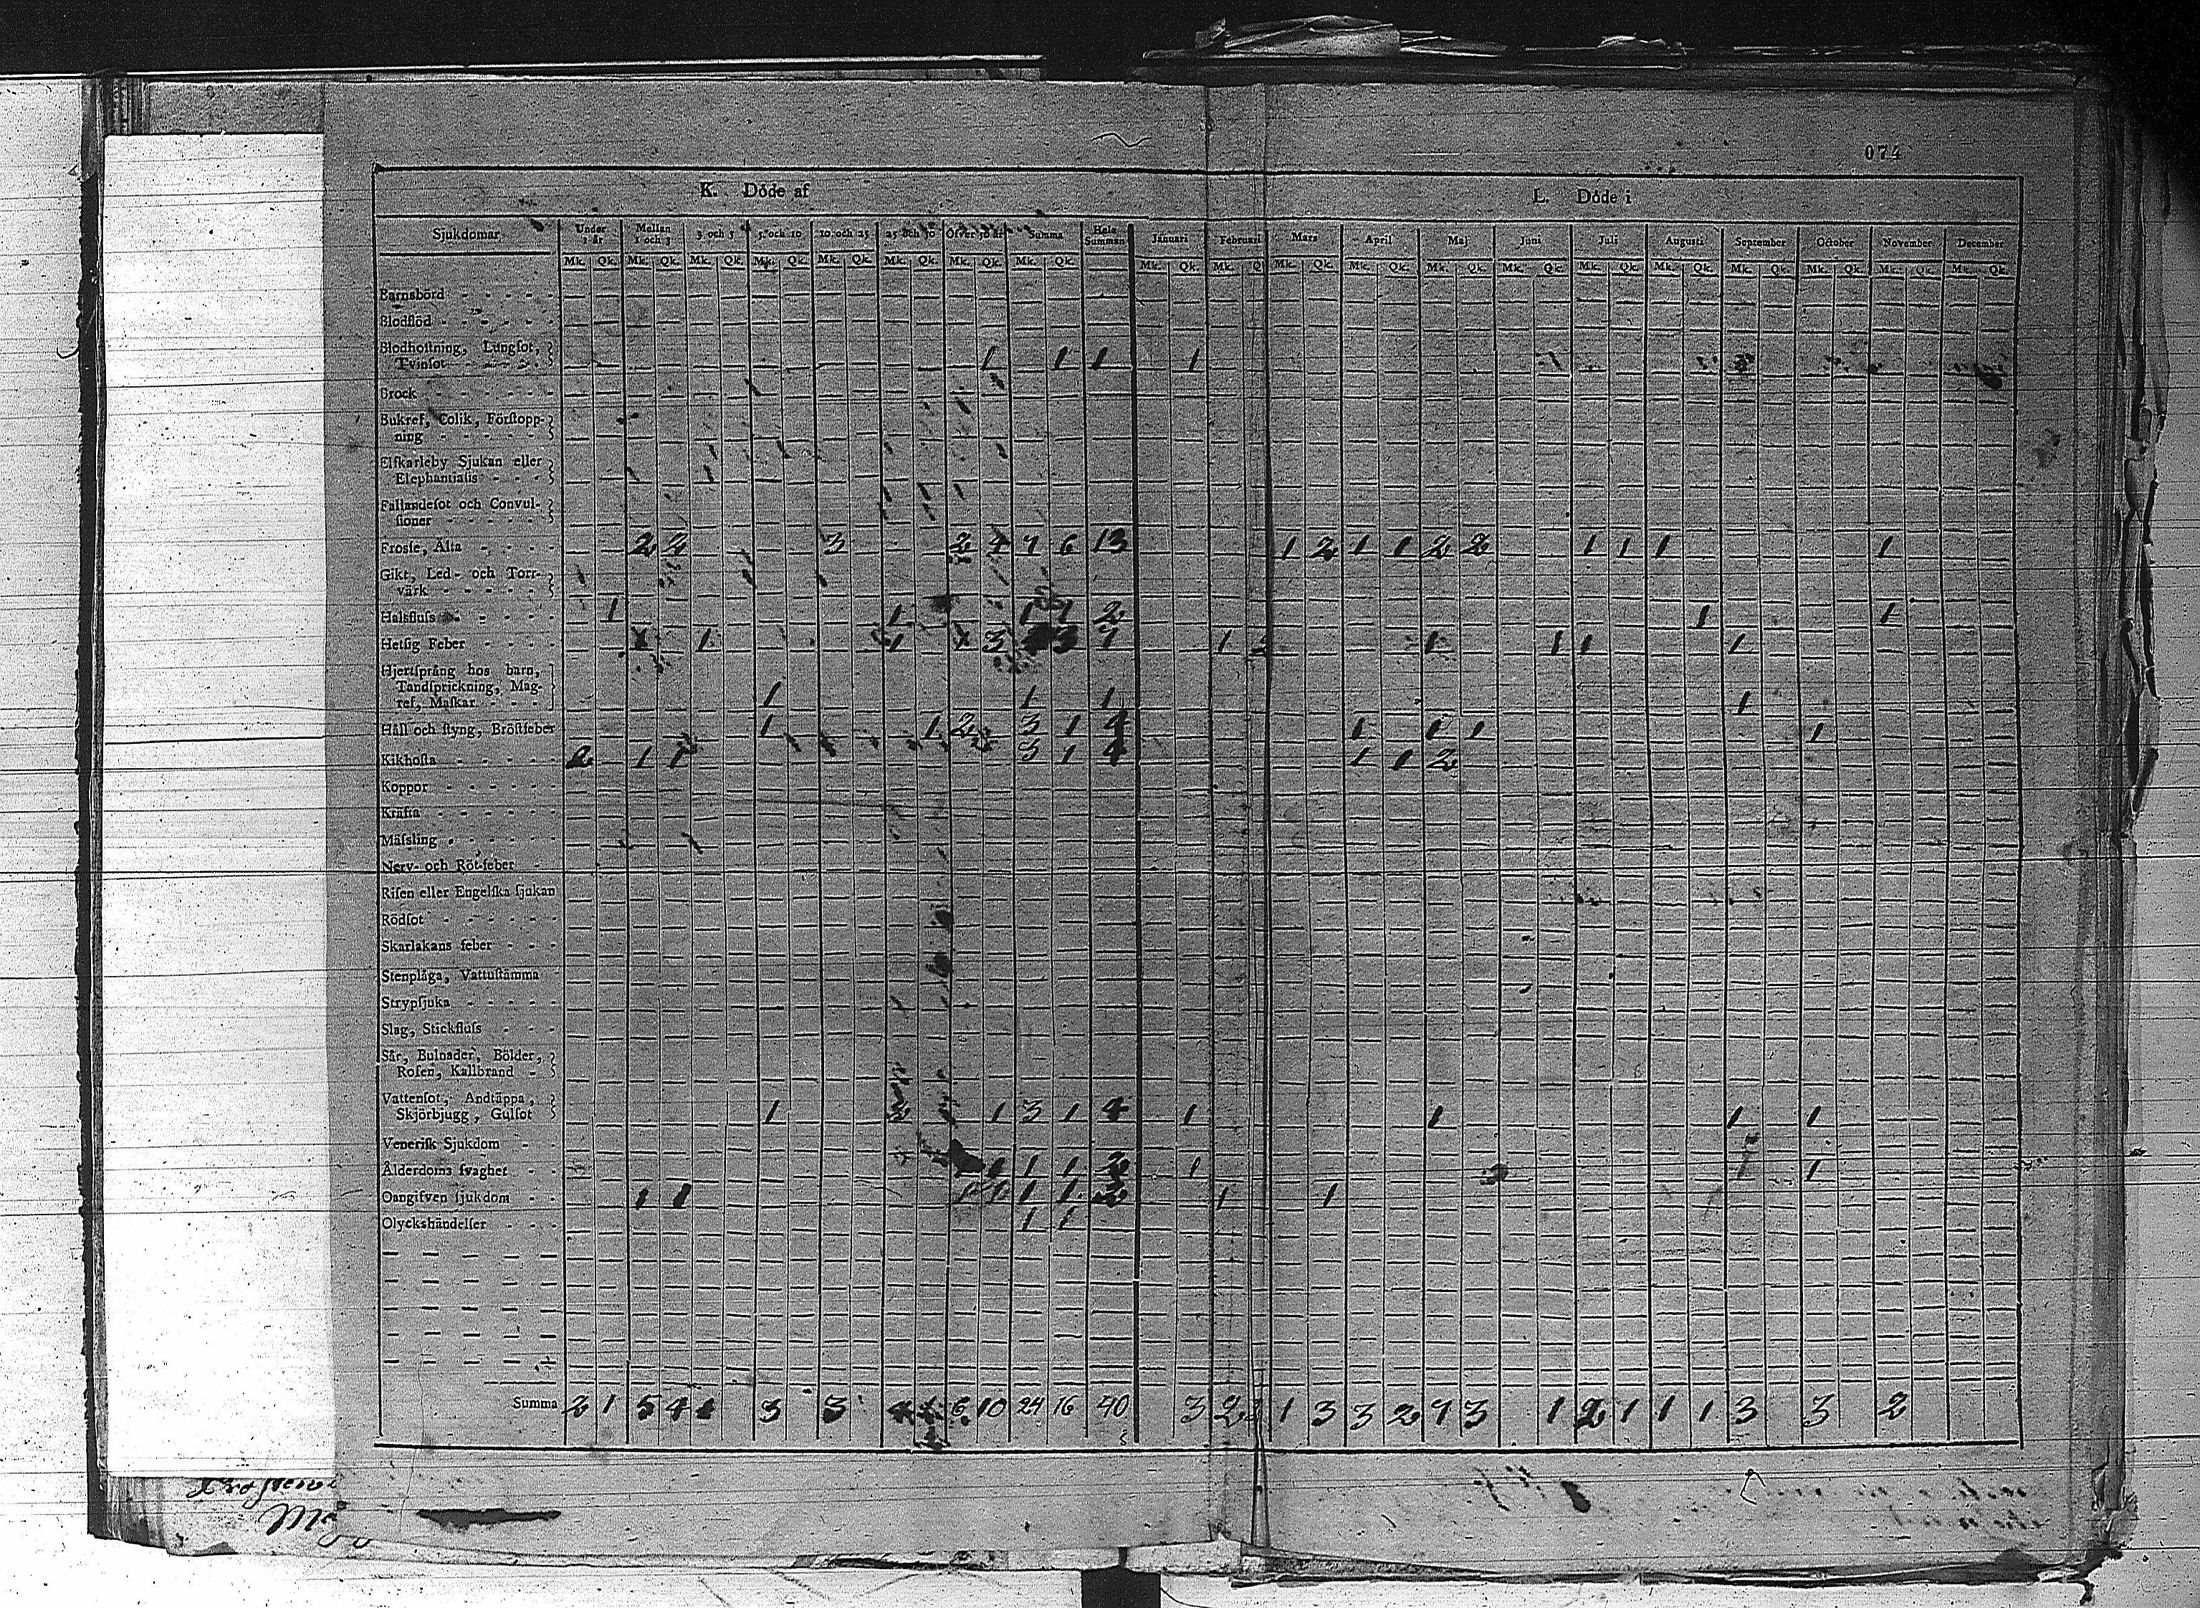 074
K. Döde af
L. Döde i
Sjukdomar Under 1 år Mellan 1 och 3 3 och 5 5 och 10 10 och 25 25 och 50 Öfver 50 år Summa Hela Summan Januari Februari Mars April Maj Juni Juli Augusti September October November December
Mk. Qk. Mk. Qk. Mk. Qk. Mk. Qk. Mk. Qk. Mk. Qk. Mk. Qk. Mk. Qk. Mk. Qk. Mk. Q Mk. Qk. Mk. Qk. Mk. Qk. Mk. Qk. Mk. Qk. Mk. Qk. Mk. Qk. Mk. Qk. Mk. Qk. Mk. Qk.
Barnsbörd
Blodflöd
Blodhostning, Lungsot,
Tvinsot 1 1 1 1 1
Brock
Bukref, Colik, Förstopp-
ning
Elfkarleby Sjukan eller
Elephantiasis
Fallandesot och Convul-
sioner
Frosse, Älta 2 2 3 2 4 7 6 13 1 2 1 1 2 2 1 1 1 1
Gikt, Led- och Torr-
värk
Halsfluss 1 1 1 1 2 1 1
Hetsig Feber 1 1 3 3 7 1 1 1 1 1
Hjertsprång hos barn,
Tandsprickning, Mag-
ref, Maskar 1 1 1 1
Håll och styng, Bröstfeber 1 1 2 3 1 4 1 1 1 1
Kikhosta 2 1 1 3 1 4 1 1 2
Koppor
Kräfta
Mässling
Nerv- och Röt-feber
Risen eller Engelska sjukan
Rödsot
Skarlakans feber
Stenplåga, Vattustämma
Strypsjuka
Slag, Stickfluss
Sår, Bulnader, Bölder,
Rosen, Kallbrand
Vattensot, Andtäppa,
Skjörbjugg, Gulsot 1 2 1 3 1 4 1 1 1 1
Venerisk Sjukdom
Ålderdoms svaghet 1 1 1 2 1 1
Oangifven sjukdom 1 1 1 1 1 1 1 1
Olyckshändelser 1 1
Summa 2 1 5 4 1 3 3 6 10 24 16 40 3 2 1 3 3 2 7 3 1 2 1 1 1 3 3 2